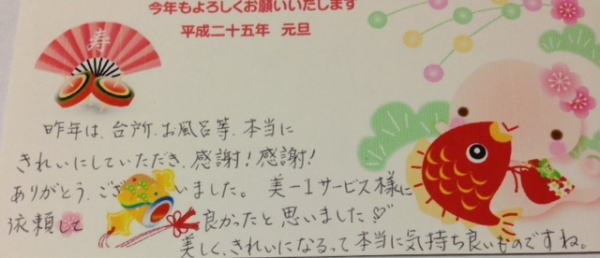 今年もよろしくお願いいたします
平成二十五年 元旦
寿
昨年は、台所、お風呂等、本当に
きれいにしていただき、感謝!感謝!
ありがとう、ございました。美-1サービス様に
依頼して良かったと思いました♡
美しく、きれいになるって本当に気持ち良いものですね。